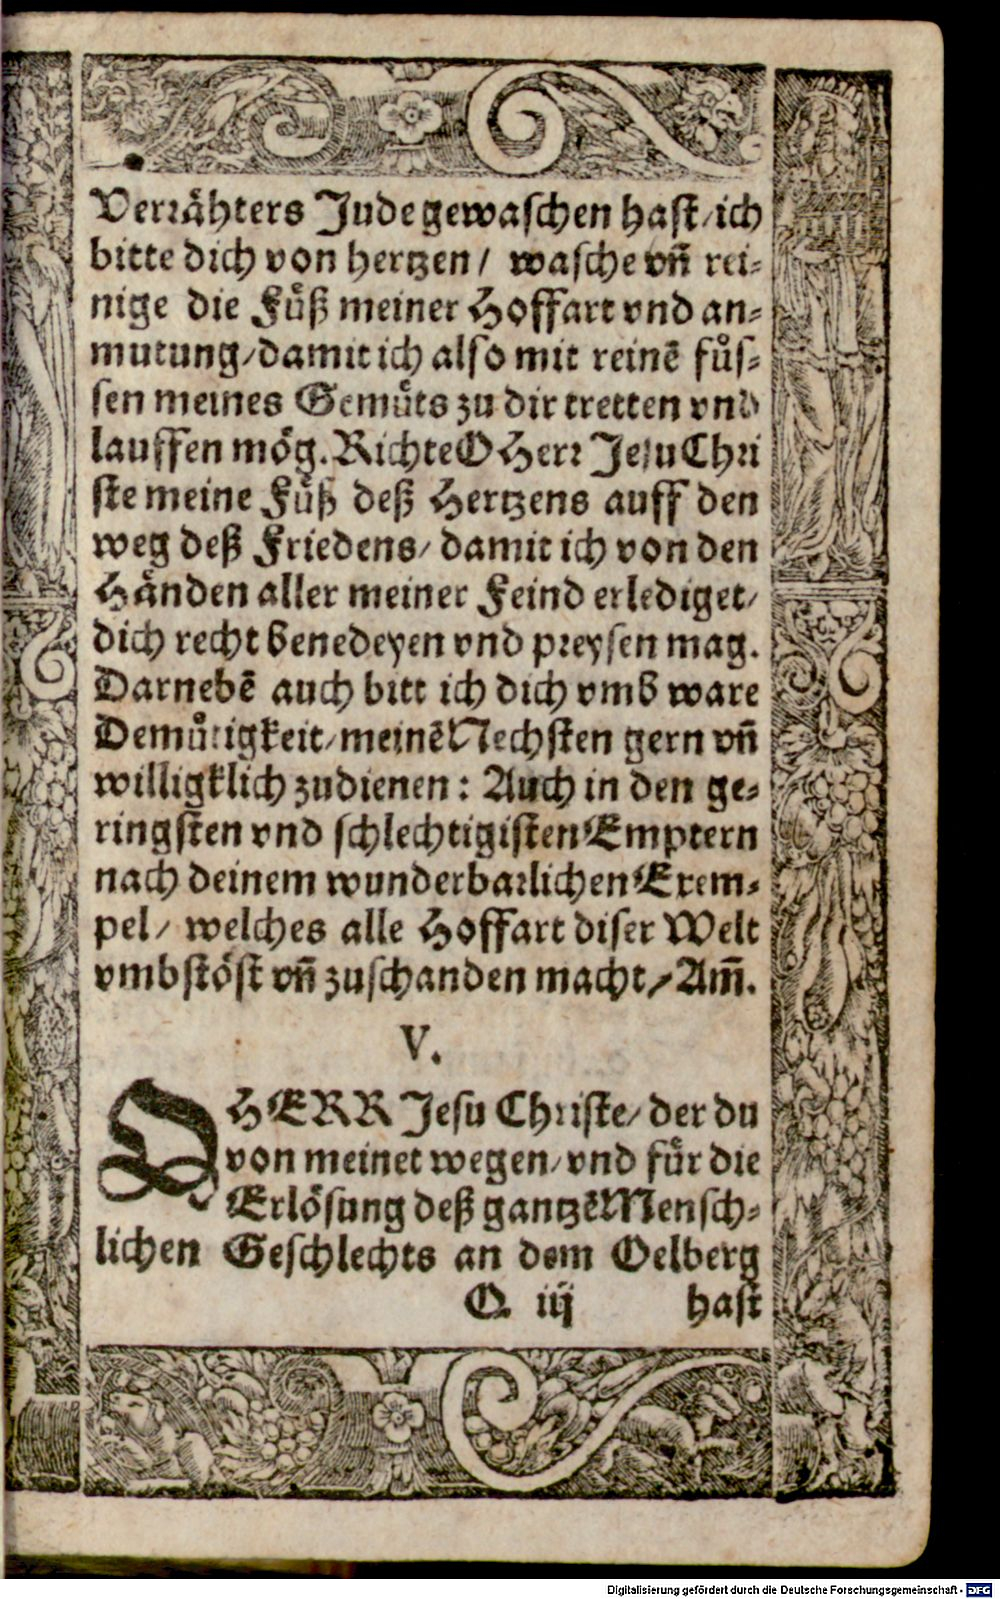 Verrähters Jude gewaschen hast/ ich
bitte dich von hertzen/ wasche vñ rei⸗
nige die Fuͤß meiner Hoffart vnd an⸗
mutung/ damit ich also mit reinẽ fuͤs⸗
sen meines Gemuͤts zu dir tretten vnd
lauffen moͤg. Richte O Herr Jesu Chri
ste meine Fuͤß deß Hertzens auff den
weg deß Friedens/ damit ich von den
Haͤnden aller meiner Feind erlediget/
dich recht benedeyen vnd preysen mag.
Darnebẽ auch bitt ich dich vmb ware
Demuͤtigkeit/ meinẽ Nechsten gern vñ
willigklich zudienen: Auch in den ge⸗
ringsten vnd schlechtigisten Emptern
nach deinem wunderbarlichen Exem⸗
pel/ welches alle Hoffart diser Welt
vmbstoͤst vñ zuschanden macht/ Am̃.
V.
O HERR Jesu Christe/ der du
von meinet wegen/ vnd fuͤr die
Erloͤsung deß gantzẽ Mensch⸗
lichen Geschlechts an dem Oelberg
Q iij hast
Digitalisierung gefördert durch die Deutsche Forschungsgemeinschaft - DFG